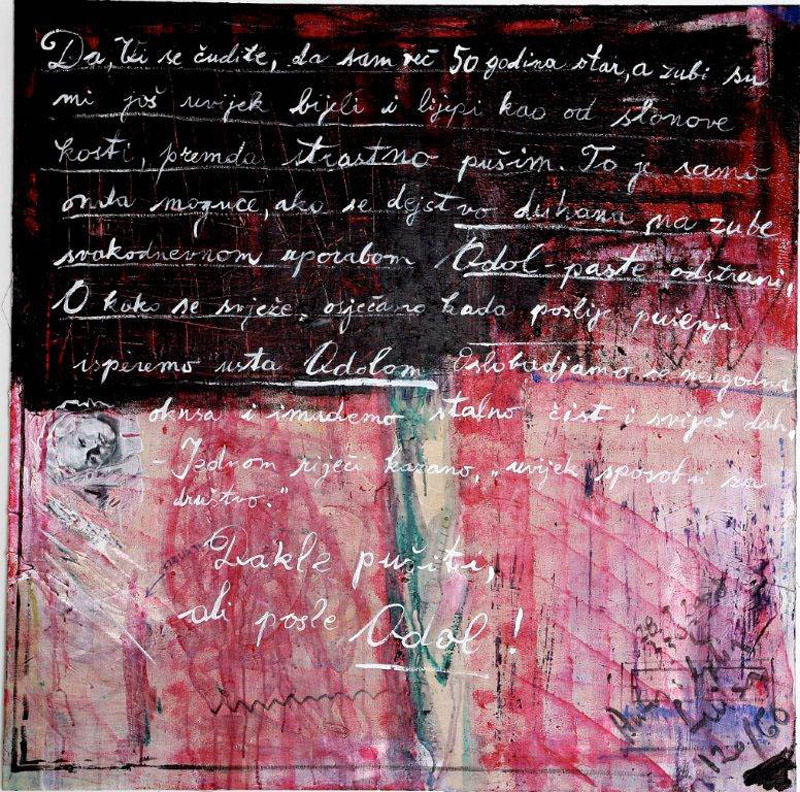 Da, Vi se čudite, da sam već 50 godina star, a zubi su
mi još uvijek bijeli i lijepi kao od slonove
kosti, premda strastno pušim. To je samo
onda moguće, ako se dejstvo duhana na zube
svakodnevnom uporabom Odol paste odstrani,
O kako se svježe, osjećamo kada poslije pušenja
isperemo usta Odolom Oslobadjamo se neugodna
okusa i imademo stalno čist i svijež dah,
- Jednom riječi kazano, „uvijek sposobni za
društvo."
Dakle pušiti,
ali posle Odol!
120/60